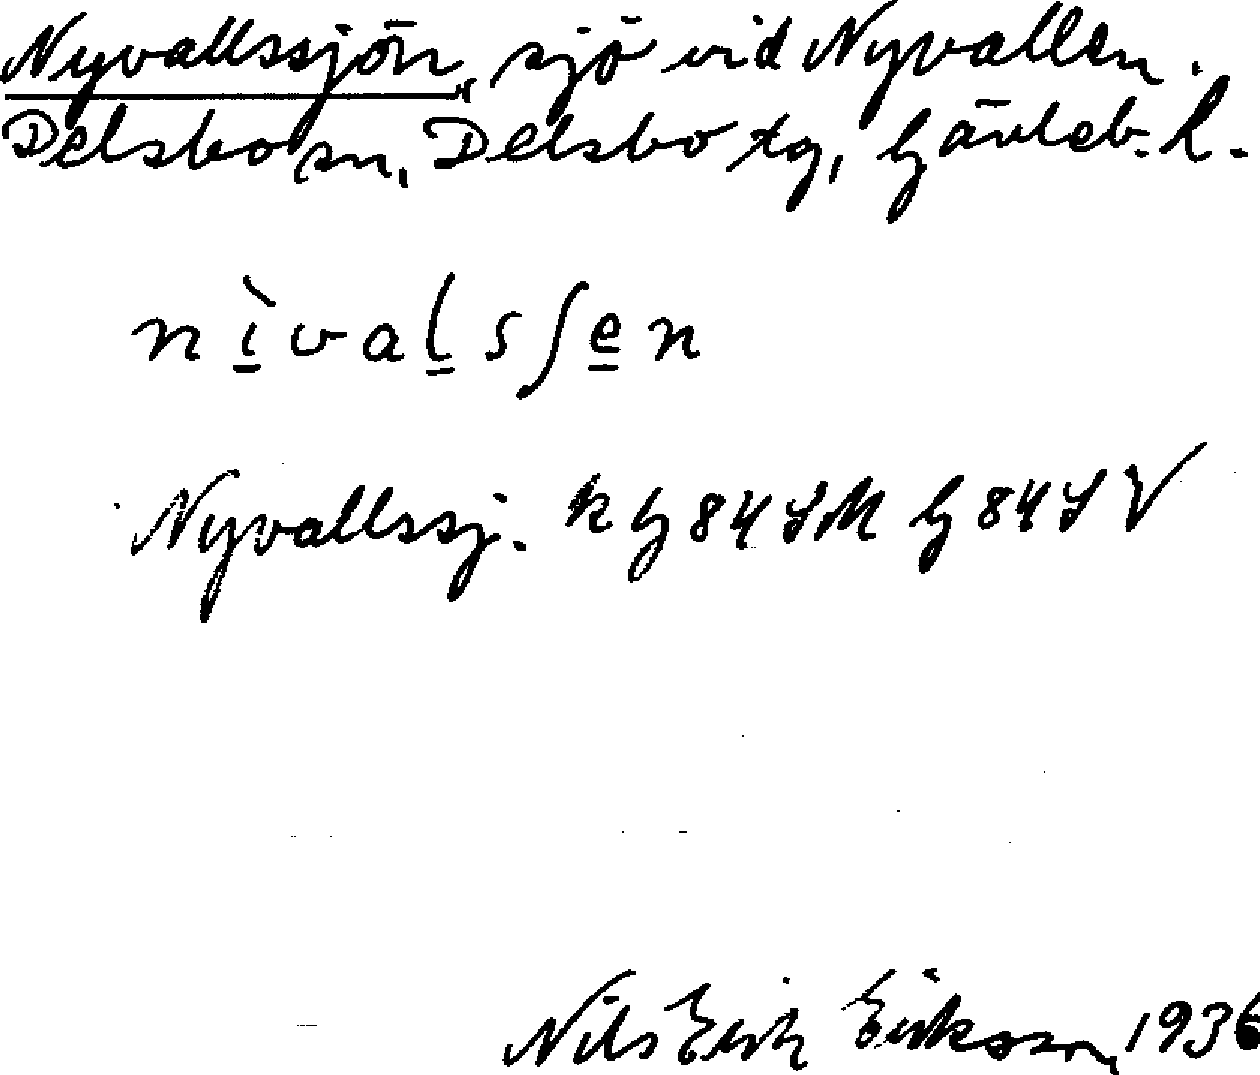 Nyvallssjön, sjö vid Nyvallen.
Delsbo sn, Delsbo tg, Gävleb. l.
nìvalsʃen
Nyvallssj. k G 84 SM G 84 S V
Nils Erik Eriksson, 1936